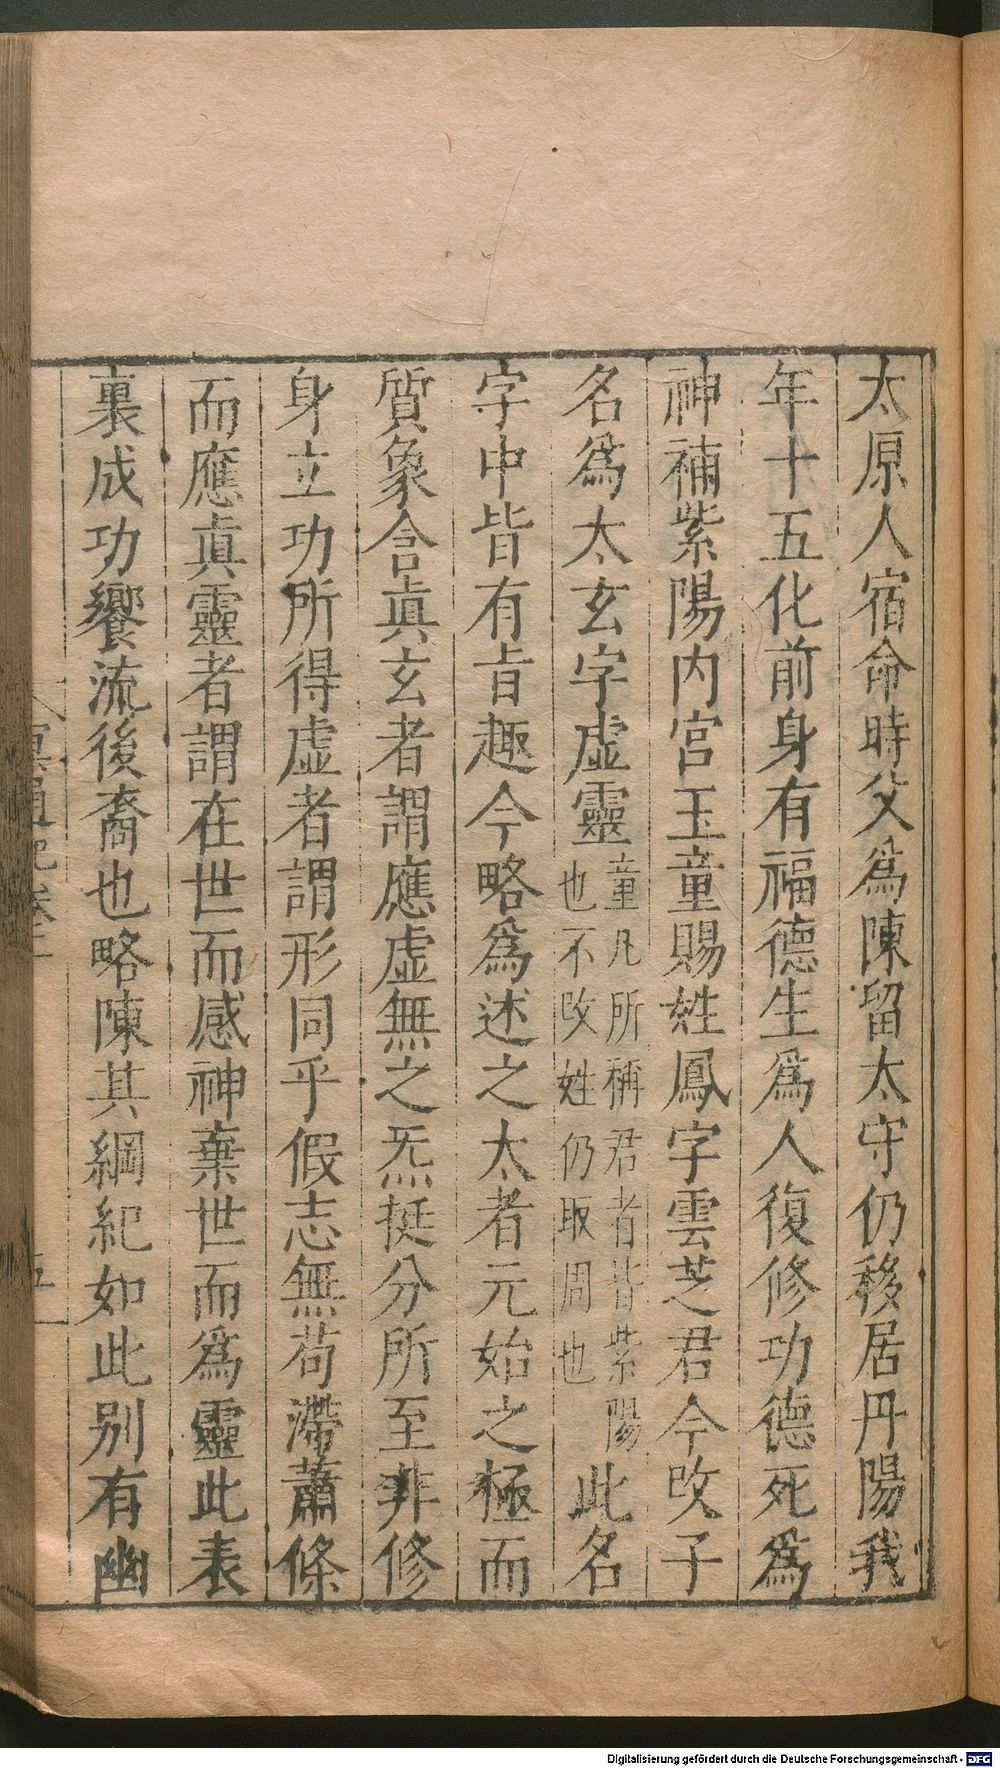 太原人宿命時父爲陳留太守仍移居丹陽我
年十五化前身有福德生爲人復修功德死爲
神補紫陽内宮玉童賜姓鳳字雲芝君今改子
名爲太玄字虛靈童凡所稱君者皆紫陽
也不改姓仍取周也此名
字中皆有旨趣今略爲述之太者元始之極而
質象含眞玄者謂應虛無之炁挺分所至非修
身立功所得虛者謂形同乎假志無苟滯蕭條
而應眞靈者謂在世而感神棄世而爲靈此表
裏成功饗流後裔也略陳其綱紀如此别有幽
冥通記卷三
五
Digitalisierung gefördert durch die Deutsche Forschungsgemeinschaft - DFG